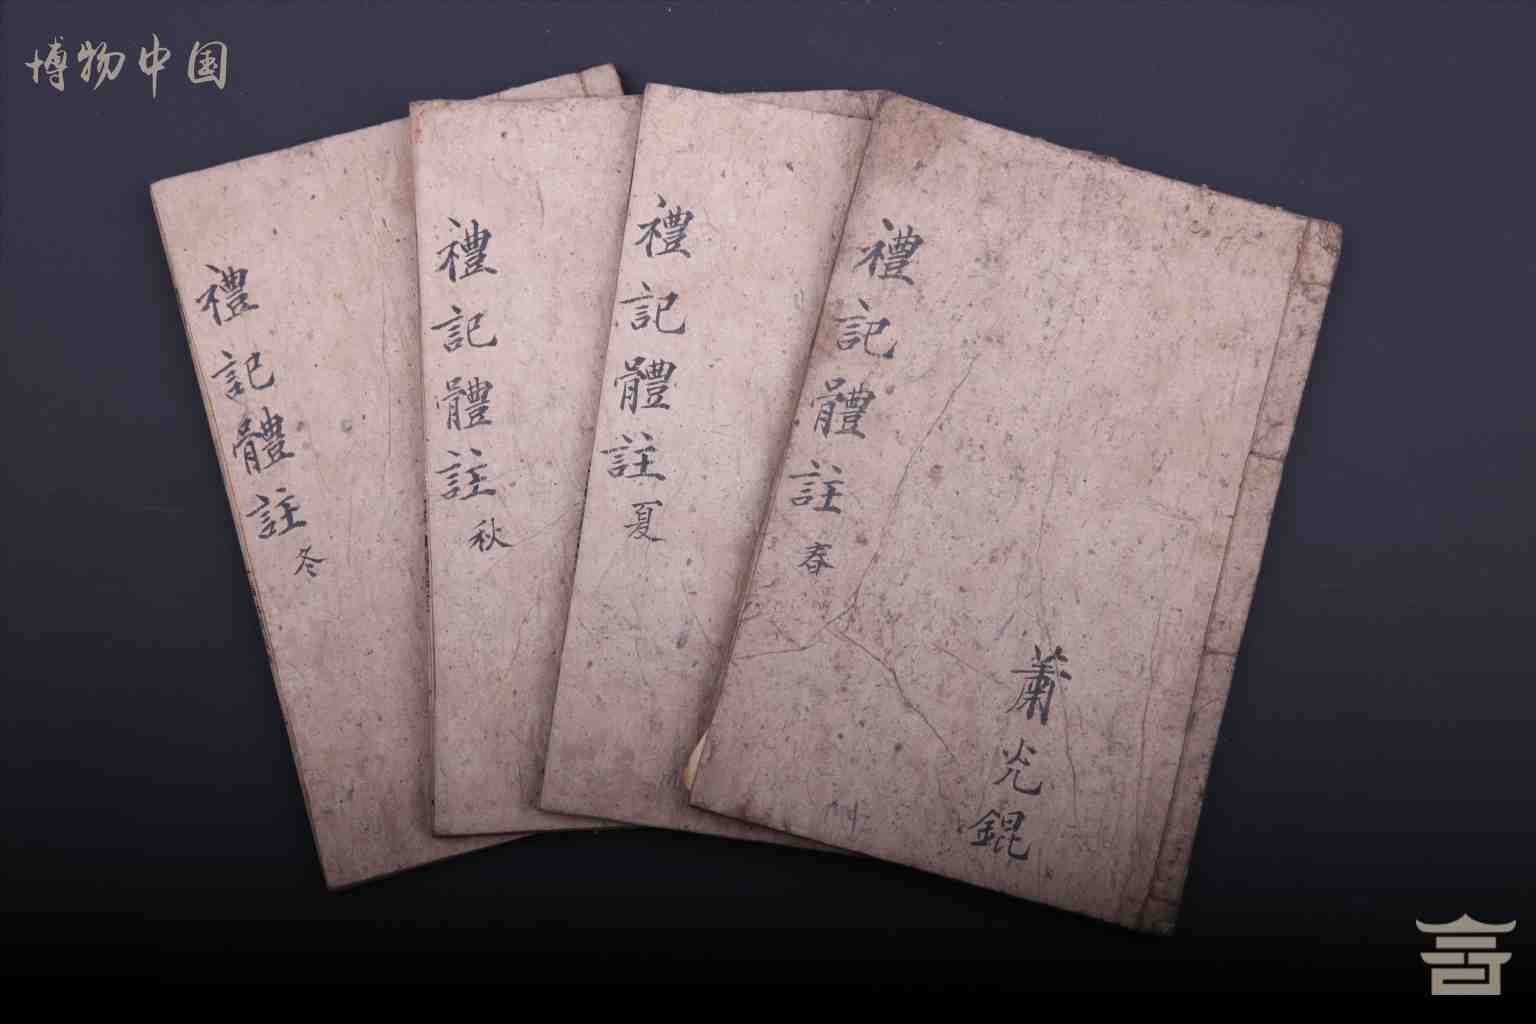 博物中国
禮記體註 春
蕭光錕
禮記體註 夏
禮記體註 秋
禮記體註 冬